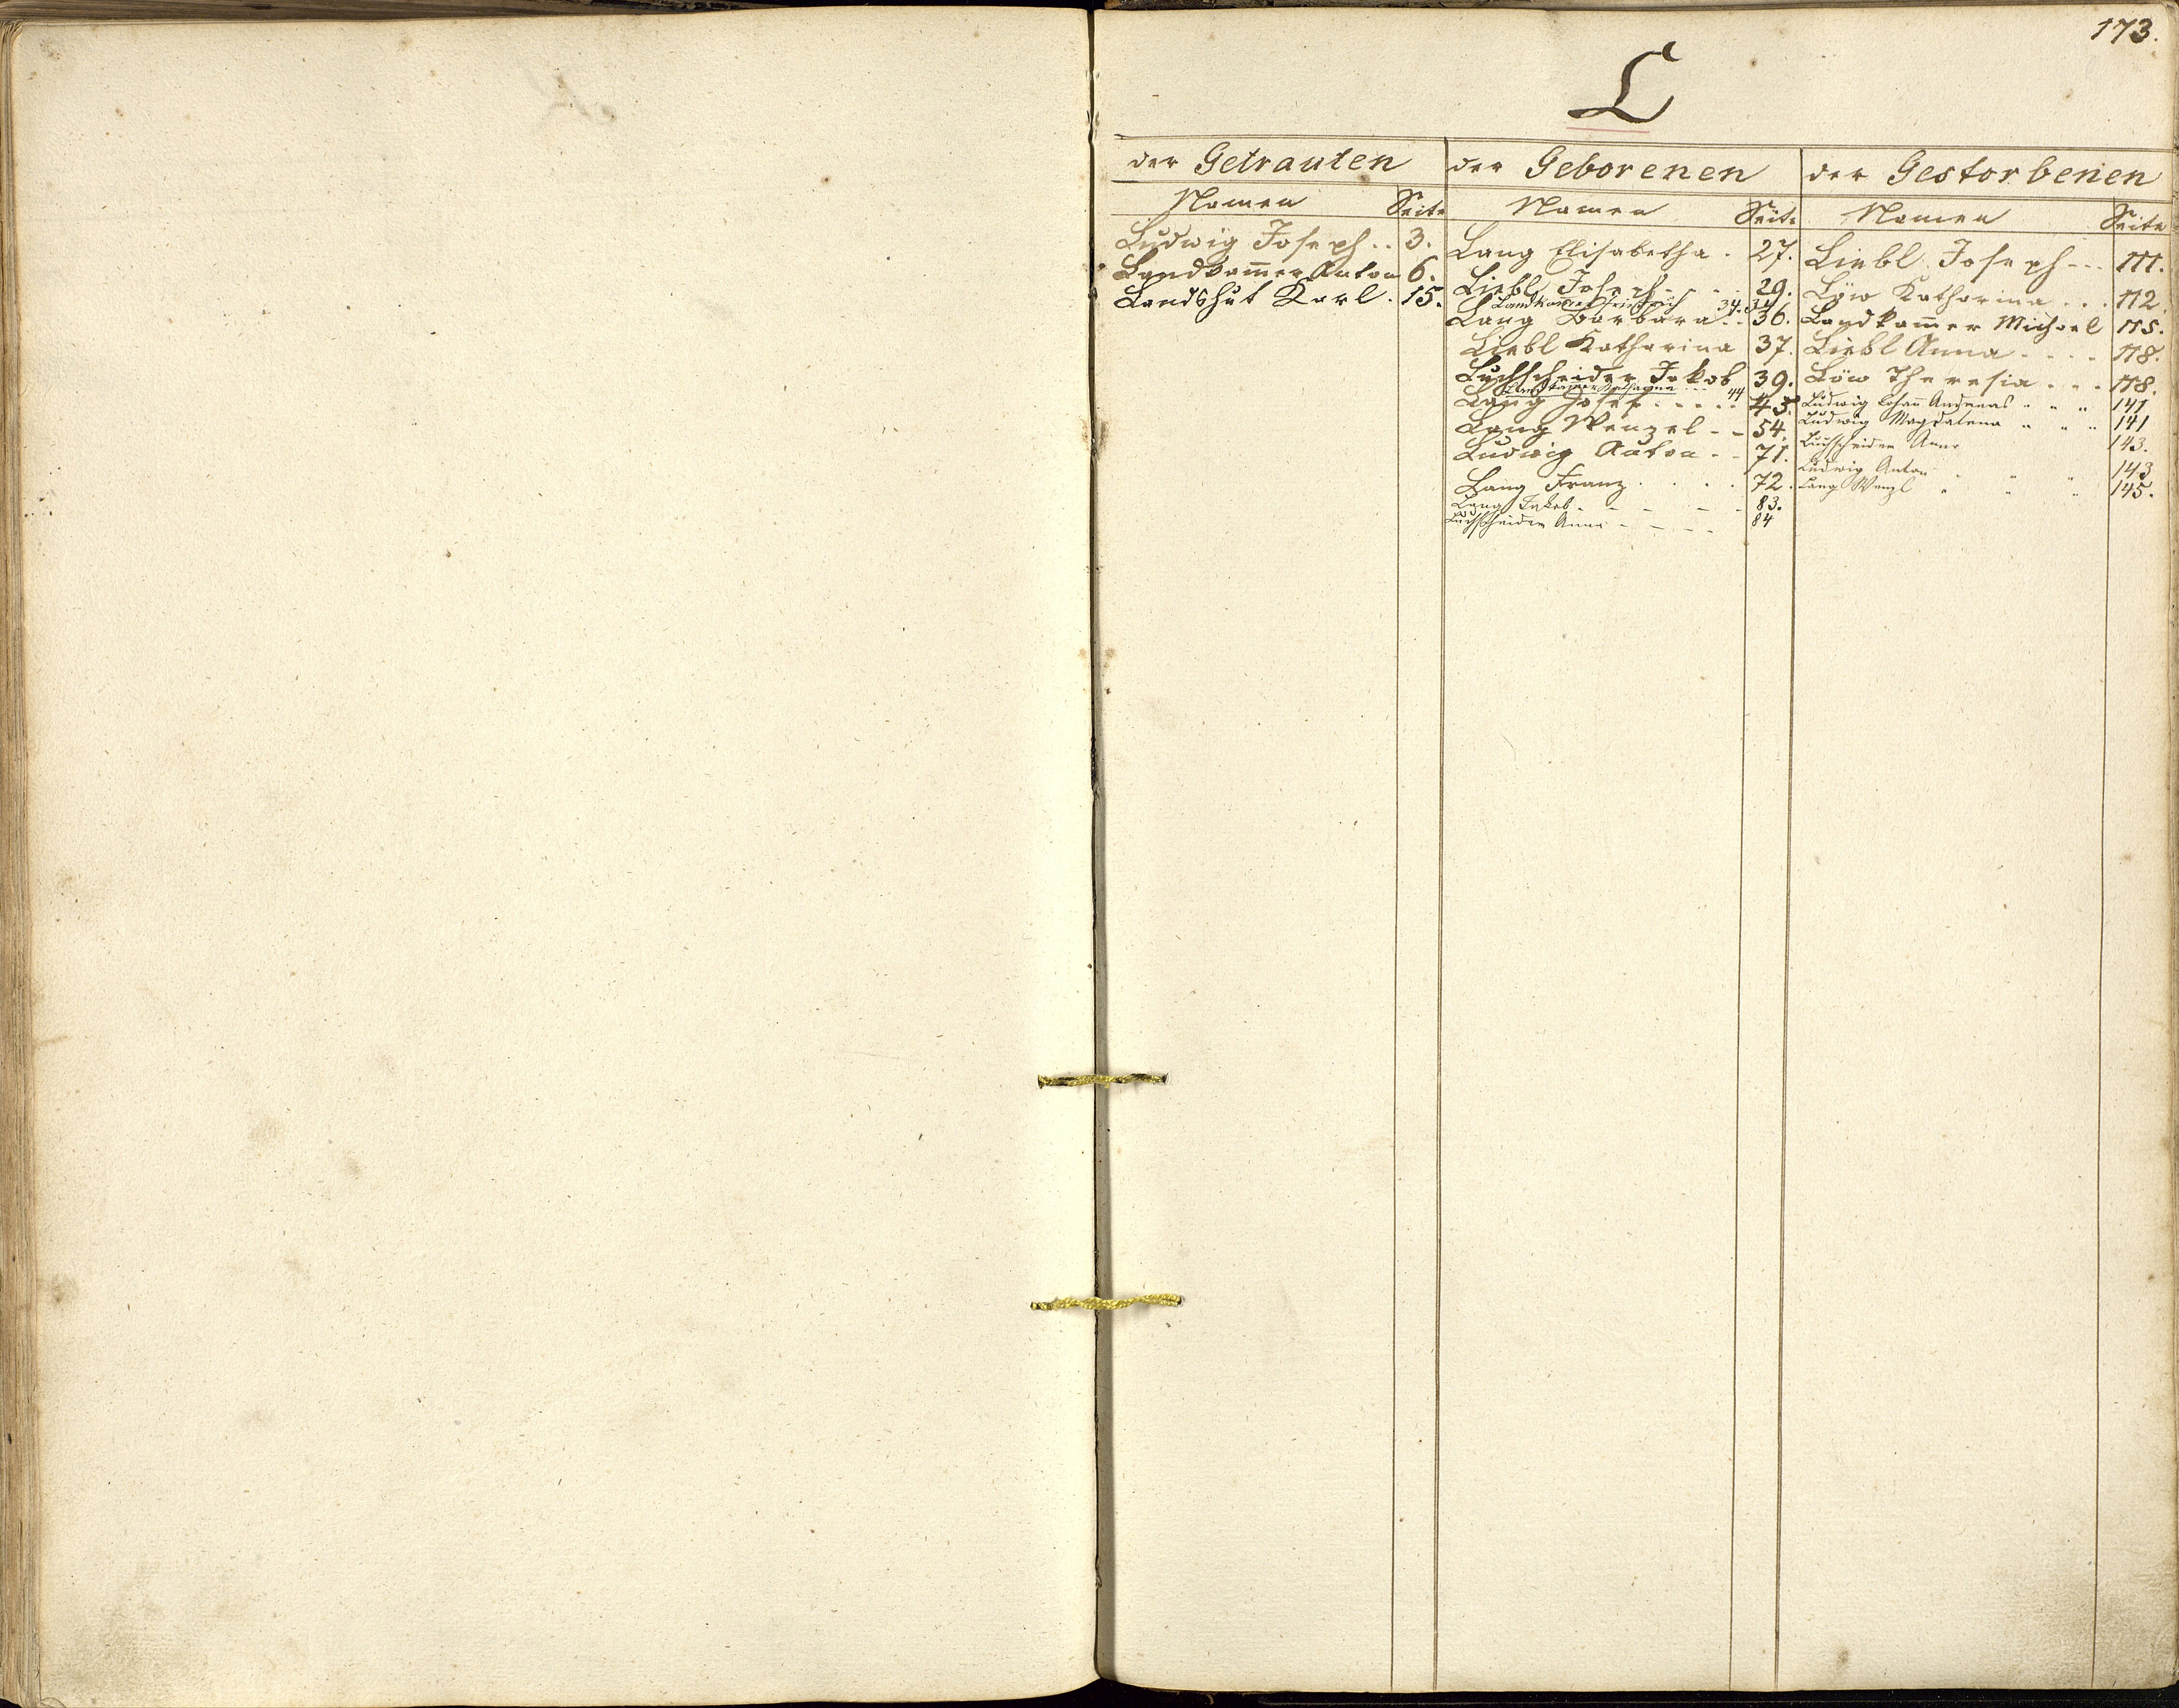 173.
L
der Getrauten
Namen Seite
Ludwig Joseph . . 3.
Landkam̄er Anton 6.
Landshut Karl . 15.
der Geborenen
Namen Seite
Lang Elisabetha . 27.
Liebl Joseph . . . 29.
Landkam̄er Friedrich 34.
Lang Barbara . . 36.
Liebl Katharina 37.
Luchscheider Jakob 39.
Landkam̄er Katharina 44
Lang Josef . . . . . 45.
Lang Wenzel - - 54.
Ludwig Anton . - 71.
Lang Franz . . . . 72.
Lang Jakob - - - - - 83.
Luchscheider Anna - - - - 84
der Gestorbenen
Namen Seite
Liebl Joseph - - - 111.
Löw Katharina . . . 112.
Landkam̄er Michael 115.
Liebl Anna . . . . 118.
Löw Theresia . . . 118.
Ludwig Johan̄ Andreas " " " 141
Ludwig Magdalena " " " 141
Luchscheider Anna 143.
Ludwig Anton " " " 143
Lang Wenzl " " " 145.